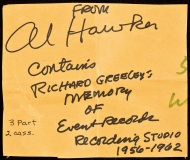 FROM
Al Hawker
Contains
RICHARD GREELEY'S
MEMORY
OF
Event Records
Recording STUDIO
1956-1962
3 Part
2 cass.